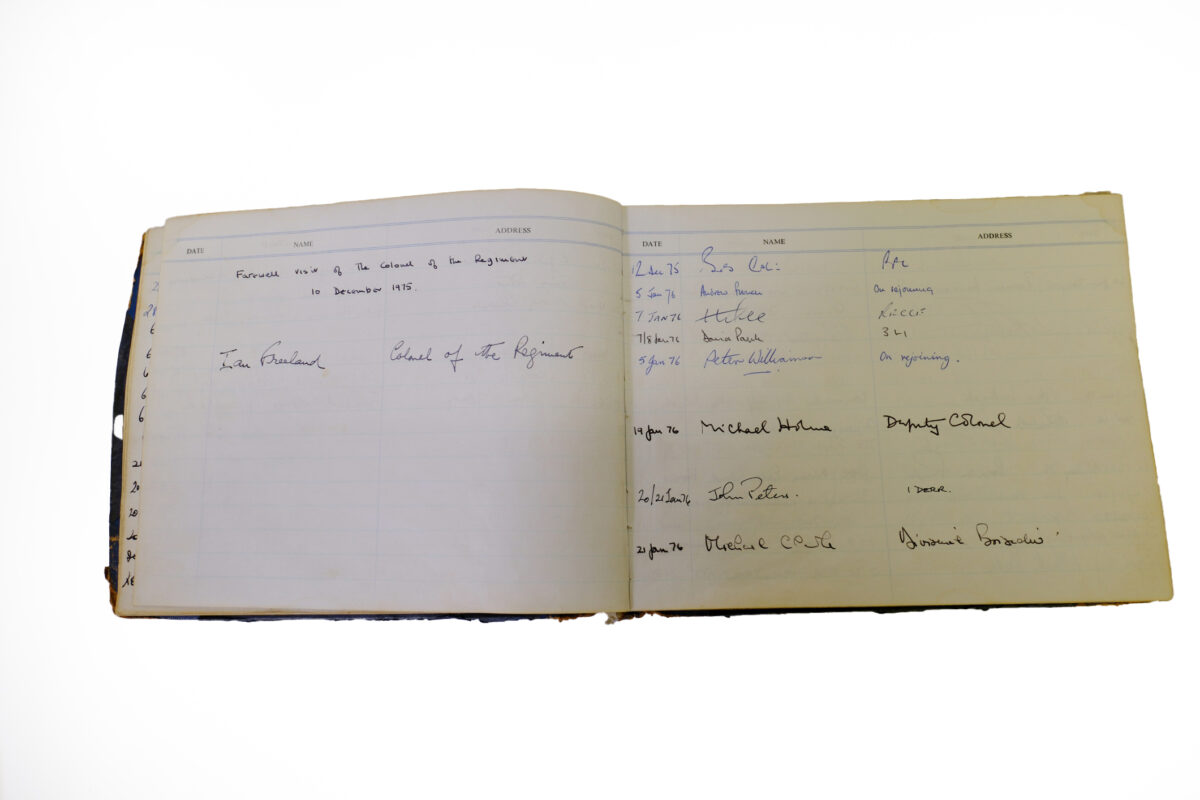 DATE NAME ADDRESS
Farewell visit of the Colonel of the Regiment
10 December 1975.
Ian Freeland Colonel of the Regiment
DATE NAME ADDRESS
12 Dec 75
5 Jan 76 Andrew On rejoining
7 JAN 76 RECCE
7/8 Jan 76 David 3 LI
5 Jan 76 Peter Williamson On rejoining.
19 Jan 76 Michael Holme Deputy Colonel
20/21 Jan 76 John Peters. 1 DERR.
21 Jan 76 Michael